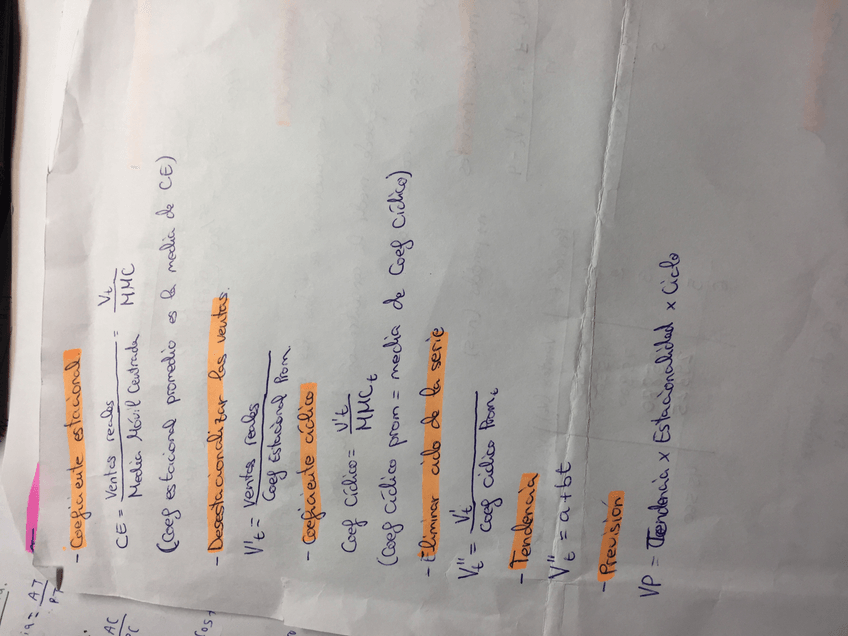 - Coeficiente estacional.
CE = Ventas reales / Media Móvil Centrada = Vt / MMC
(Coef estacional promedio es la media de CE)
- Desestacionalizar las ventas.
V't = Ventas reales / Coef Estacional Prom.
- Coeficiente cíclico
Coef Cíclico = V't / MMCt
(Coef cíclico prom = media de Coef Cíclico)
- Eliminar ciclo de la serie
Vt'' = Vt' / Coef Cíclico Promt
- Tendencia
V''t = a + bt
- Previsión
VP = Tendencia x Estacionalidad x Ciclo
AT
PT
AC